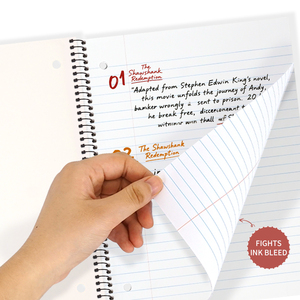 01 The
Shawshank
Redemption
"Adapted from Stephen Edwin King's novel,
this movie unfolds the journey of Andy,
banker wrongly sent to prison. 20
he break free,
The Shawshank
Redemption
in
FIGHTS
INK BLEED